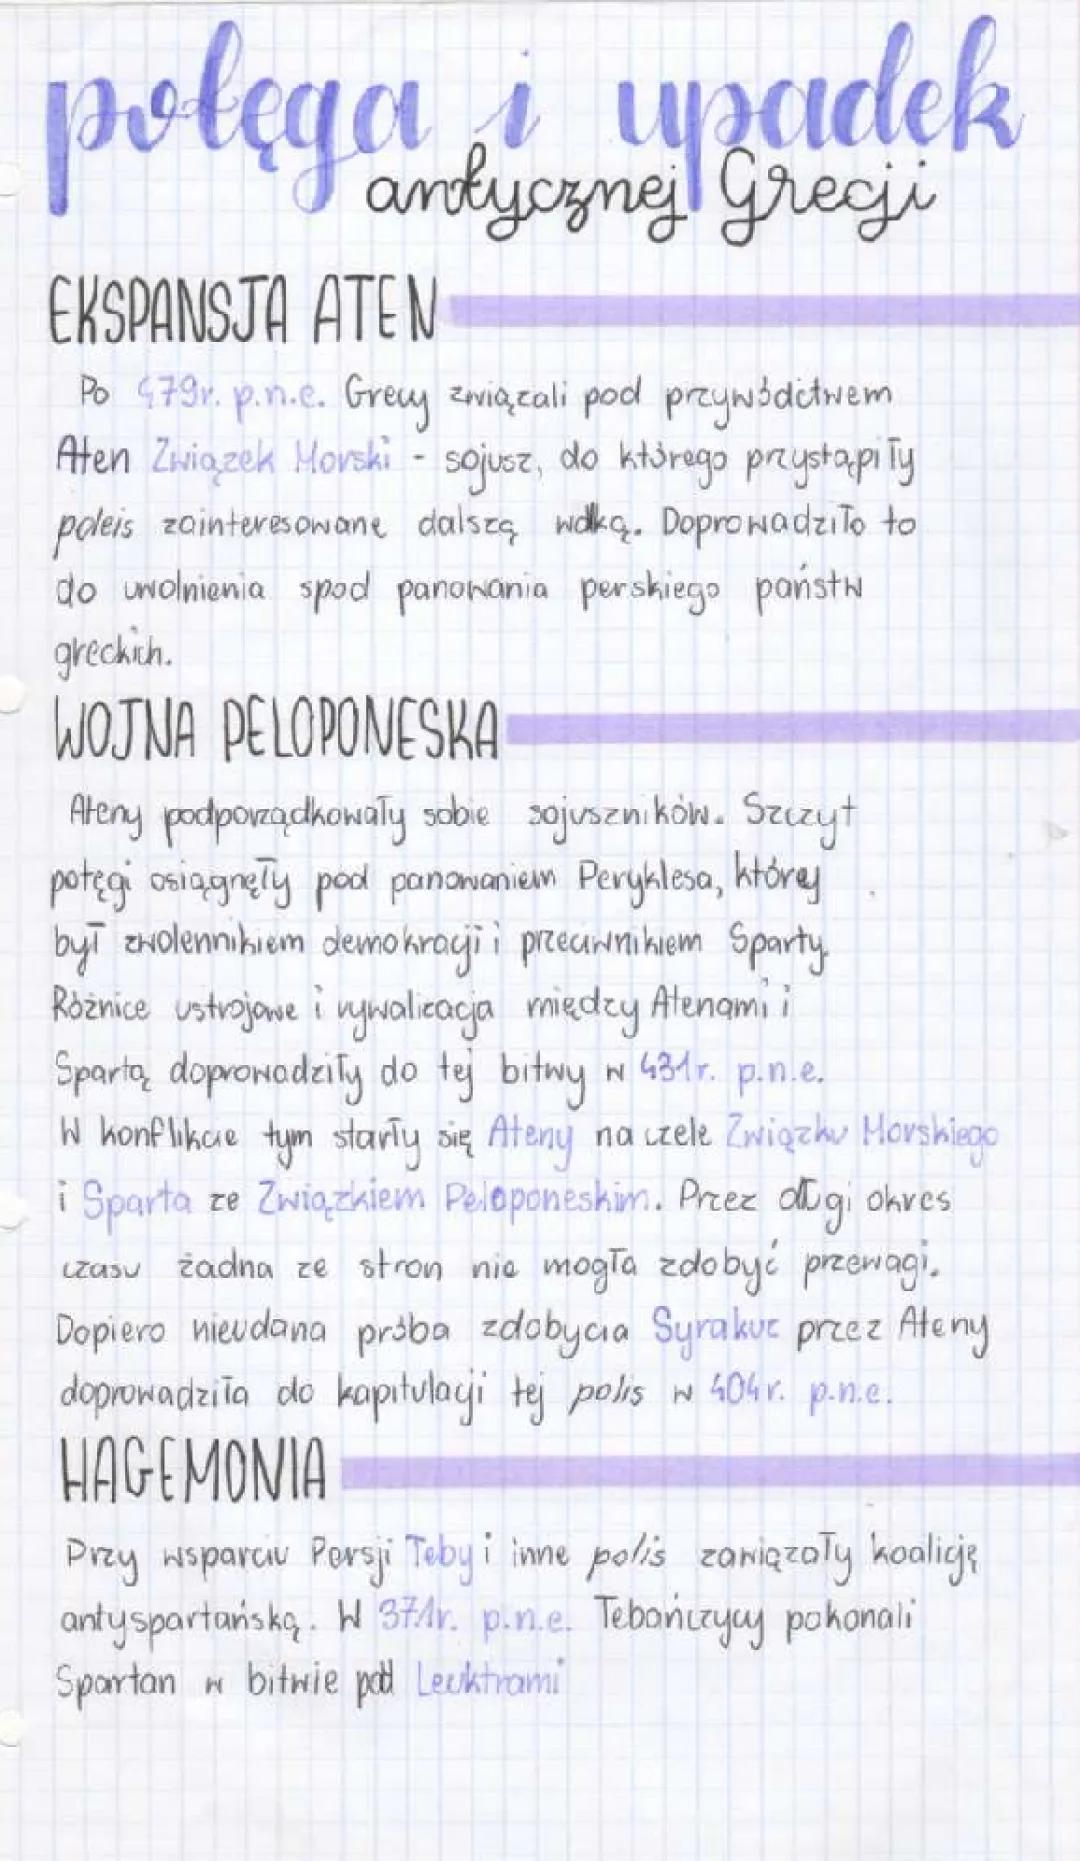 potęga i upadek
antycznej Grecji
EKSPANSJA ATEN
Po 479r. p.n.e. Grecy związali pod przywództwem
Aten Związek Morski - sojusz, do którego przystąpiły
poleis zainteresowane dalszą walką. Doprowadziło to
do uwolnienia spod panowania perskiego państw
greckich.
WOJNA PELOPONESKA
Ateny podporządkowały sobie sojuszników. Szczyt
potęgi osiągnęły pod panowaniem Peryklesa, który
był zwolennikiem demokracji i przeciwnikiem Sparty.
Różnice ustrojowe i rywalizacja między Atenami i
Spartą doprowadziły do tej bitwy w 431r. p.n.e.
W konflikcie tym starły się Ateny na czele Związku Morskiego
i Sparta ze Związkiem Peloponeskim. Przez długi okres
czasu żadna ze stron nie mogła zdobyć przewagi.
Dopiero nieudana próba zdobycia Syrakuz przez Ateny
doprowadziła do kapitulacji tej polis w 404r. p.n.e.
HAGEMONIA
Przy wsparciu Persji Teby i inne polis zawiązały koalicję
antyspartańską. W 371r. p.n.e. Tebańczycy pokonali
Spartan w bitwie pod Leuktrami